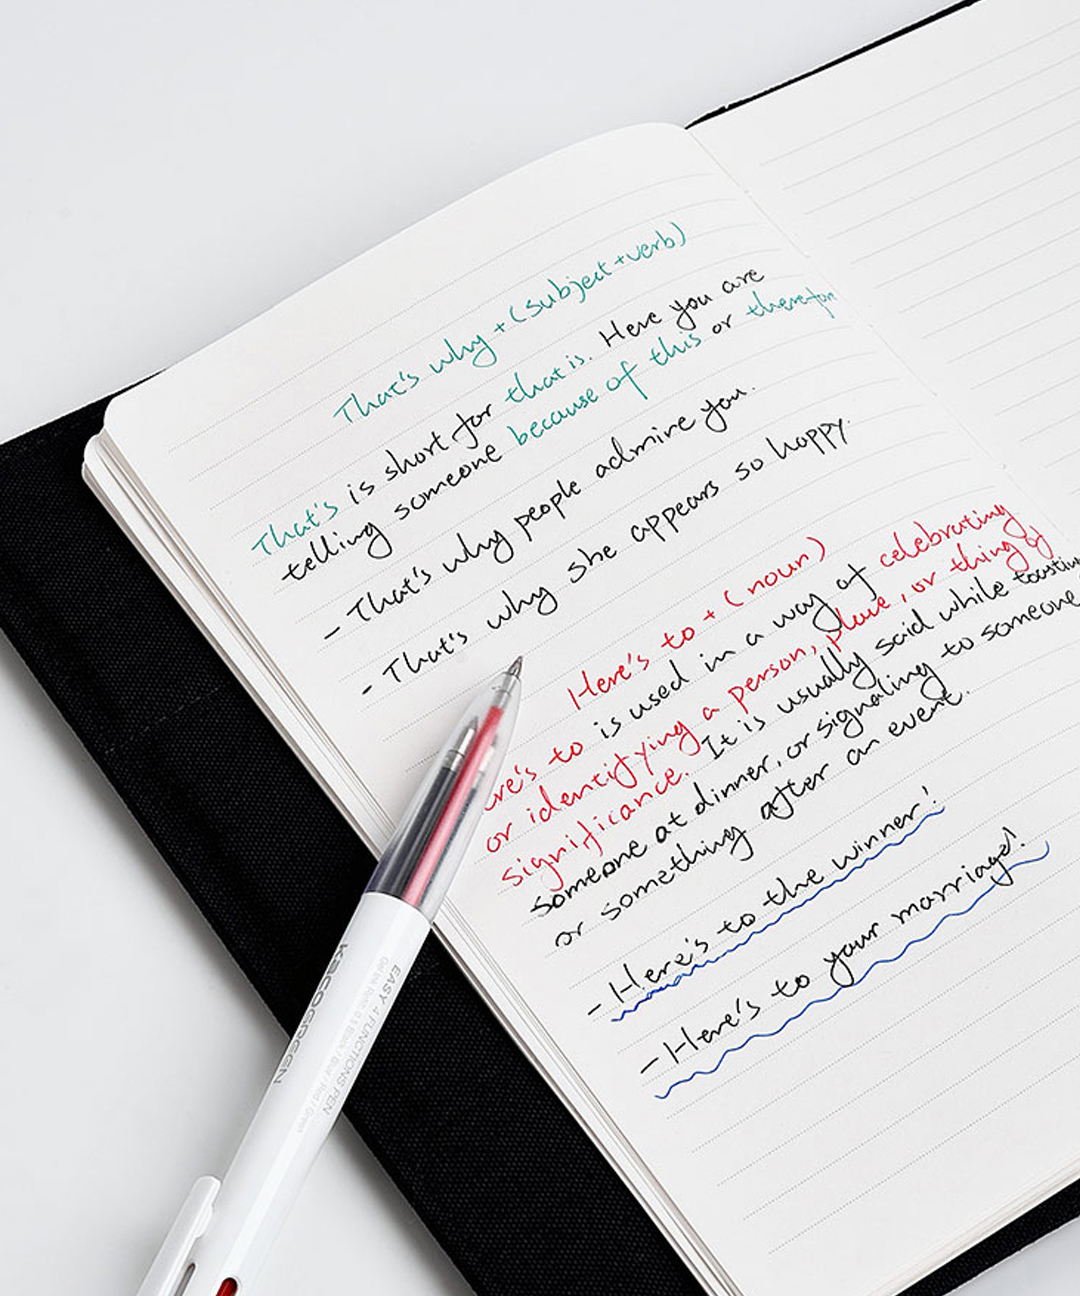 That's why + (subject + verb)
That's is short for that is. Here you are
telling someone because of this or therefore
- That's why people admire you.
- That's why she appears so happy.
Here's to + (noun)
ere's to is used in a way of celebrating
or identifying a person, place, or thing of
significance. It is usually said while toastin
someone at dinner, or signaling to someone
or something after an event.
- Here's to the winner!
- Here's to your marriage!
KACOGREEN
EASY 4 FUNCTIONS PEN